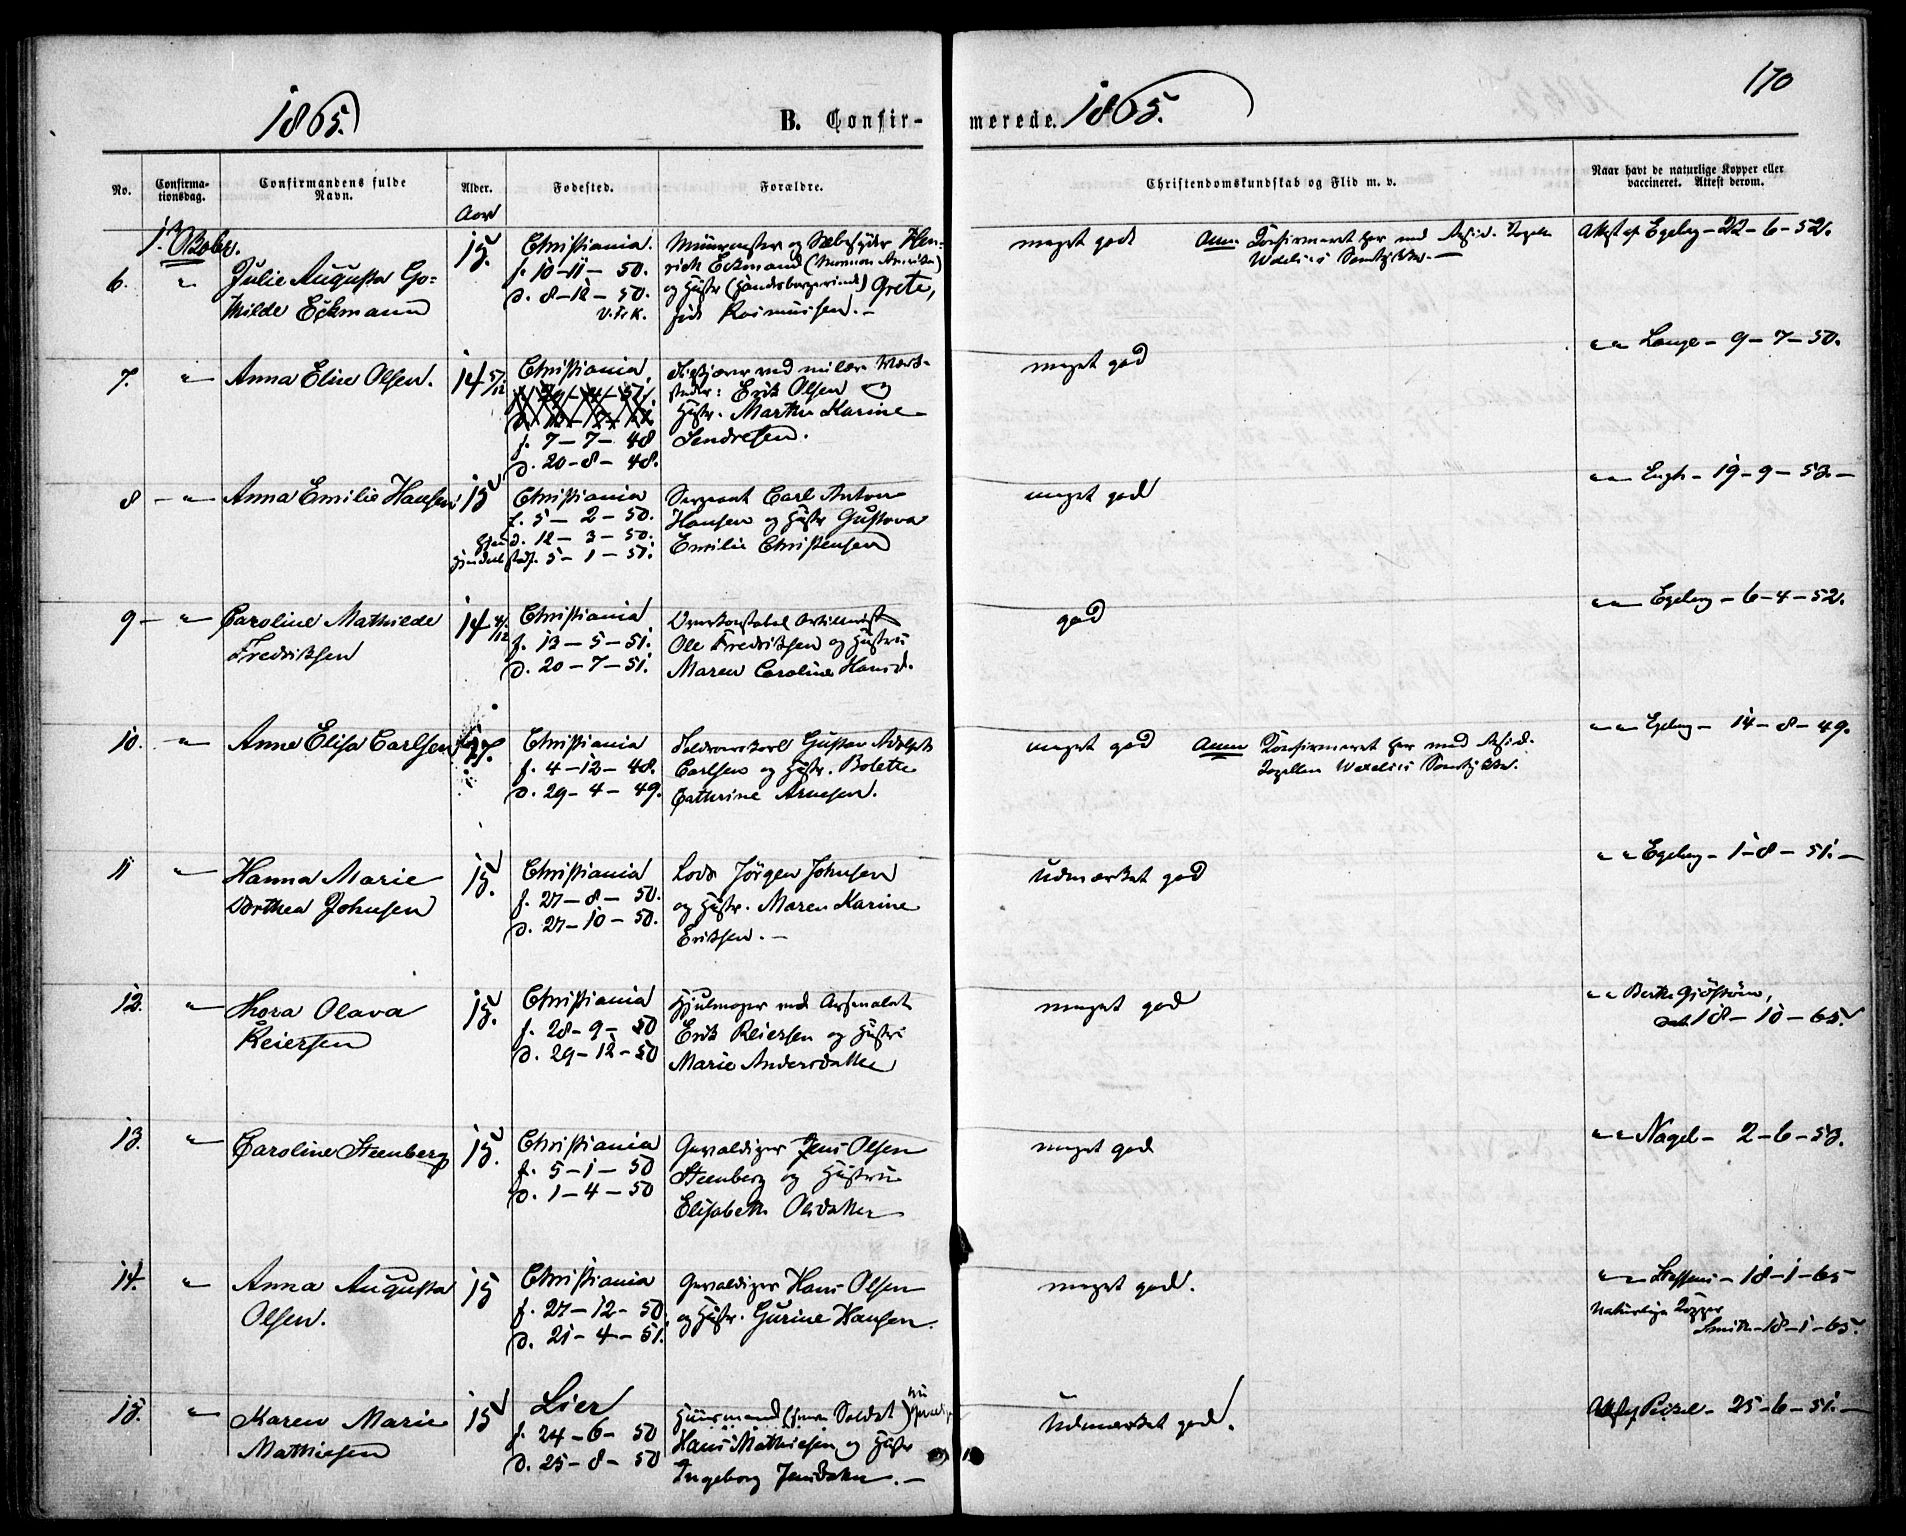 170
1865.
B. Confir-
merede. 1865.
No.
Confirma-
tionsdag.
Confirmandens fulde
Navn.
Alder.
Fødested.
Forældre.
Christendomskundskab og Flid m. v.
Naar havt de naturlige Kopper eller
vaccineret. Attest derom.
Aar
1. Octobr.
6. " Julie Augusta Go-
thilde Eckmann
15.
Christiania.
f. 10-11-50.
d. 8-12-50.
V. Fr. K.
Muurmester og Sæbesyder Hen-
rich Eckmann
og Hustr Grete,
født Rasmussen.
meget godt
Anm. Konfirmeret her med
Wexelsens Samtykke.
Attest af Egeberg - 22-6-52.
7. " Anna Elise Olsen.
14 5/12
Christiania.
f. 7-7-48
d. 20-8-48.
Erik Olsen og
Hustr. Marthe Karine
Sendresen.
meget god
" " Lange - 9-7-50.
8 - " Anna Emilie Hansen
15
Christiania
f. 5-2-50.
d. 12-3-50.
5-1-51.
Sergeant Carl Anton
Hansen og Hustr Gustava
Emilie Christensen
meget god
" " Engh - 19-9-53. -
9 - " Caroline Mathilde
Fredriksen
14 4/12
Christiania
f. 13-5-51.
d. 20-7-51.
Overkonstabel
Ole Fredriksen og Hustru
Maren Caroline Hansd.
god
" " Egeberg - 6-4-52.
10. " Anne Elisa Carlsen
17.
Christiania
f. 4-12-48.
d. 29-4-49.
Gustav Adolph
Carlsen og Hustr. Bolette
Cathrine Arnesen.
meget god
Anm Konfirmeret her med
Kapellan Wexelsens Samtykke.
" " Egeberg - 14-8-49.
11 " Hanna Marie
Dorthea Johnsen
15.
Christiania
f. 27-8-50.
d. 27-10-50.
Lods Jørgen Johnsen
og Hustr. Maren Karine
Eriksen. -
Udmærket god
" " Egeberg - 1-8-51. -
12. " Thora Olava
Reiersen
15.
Christiania
f. 28-9-50
d. 29-12-50
Hjulmager ved Arsenalet
Erik Reiersen og Hustru
Marie Andersdatter
meget god
" " Berthe Gjöström,
dat. 18-10-65.
13. " Caroline Steenberg
15.
Christiania
f. 5-1-50
d. 1-4-50
Gevaldiger Jens Olsen
Steenberg og Hustru
Elisabeth Olsdatter
meget god
" " Nagel - 2-6-53.
14. " Anna Augusta
Olsen.
15
Christiania
f. 27-12-50.
d. 21-4-51.
Gevaldiger Hans Olsen
og Hustr. Gurine Hansen.
meget god.
" " Steffens - 18-1-65
Naturlige Kopper
Smith - 18-1-65.
15. " Karen Marie
Mathiesen
15
Lier
f. 24-6-50
d. 25-8-50
Huusmand (forrn Soldat) nu
Hans Mathiesen og Hustr
Ingeborg Jensdatter. -
Udmærket god.
Attest af - 25-6-51. -